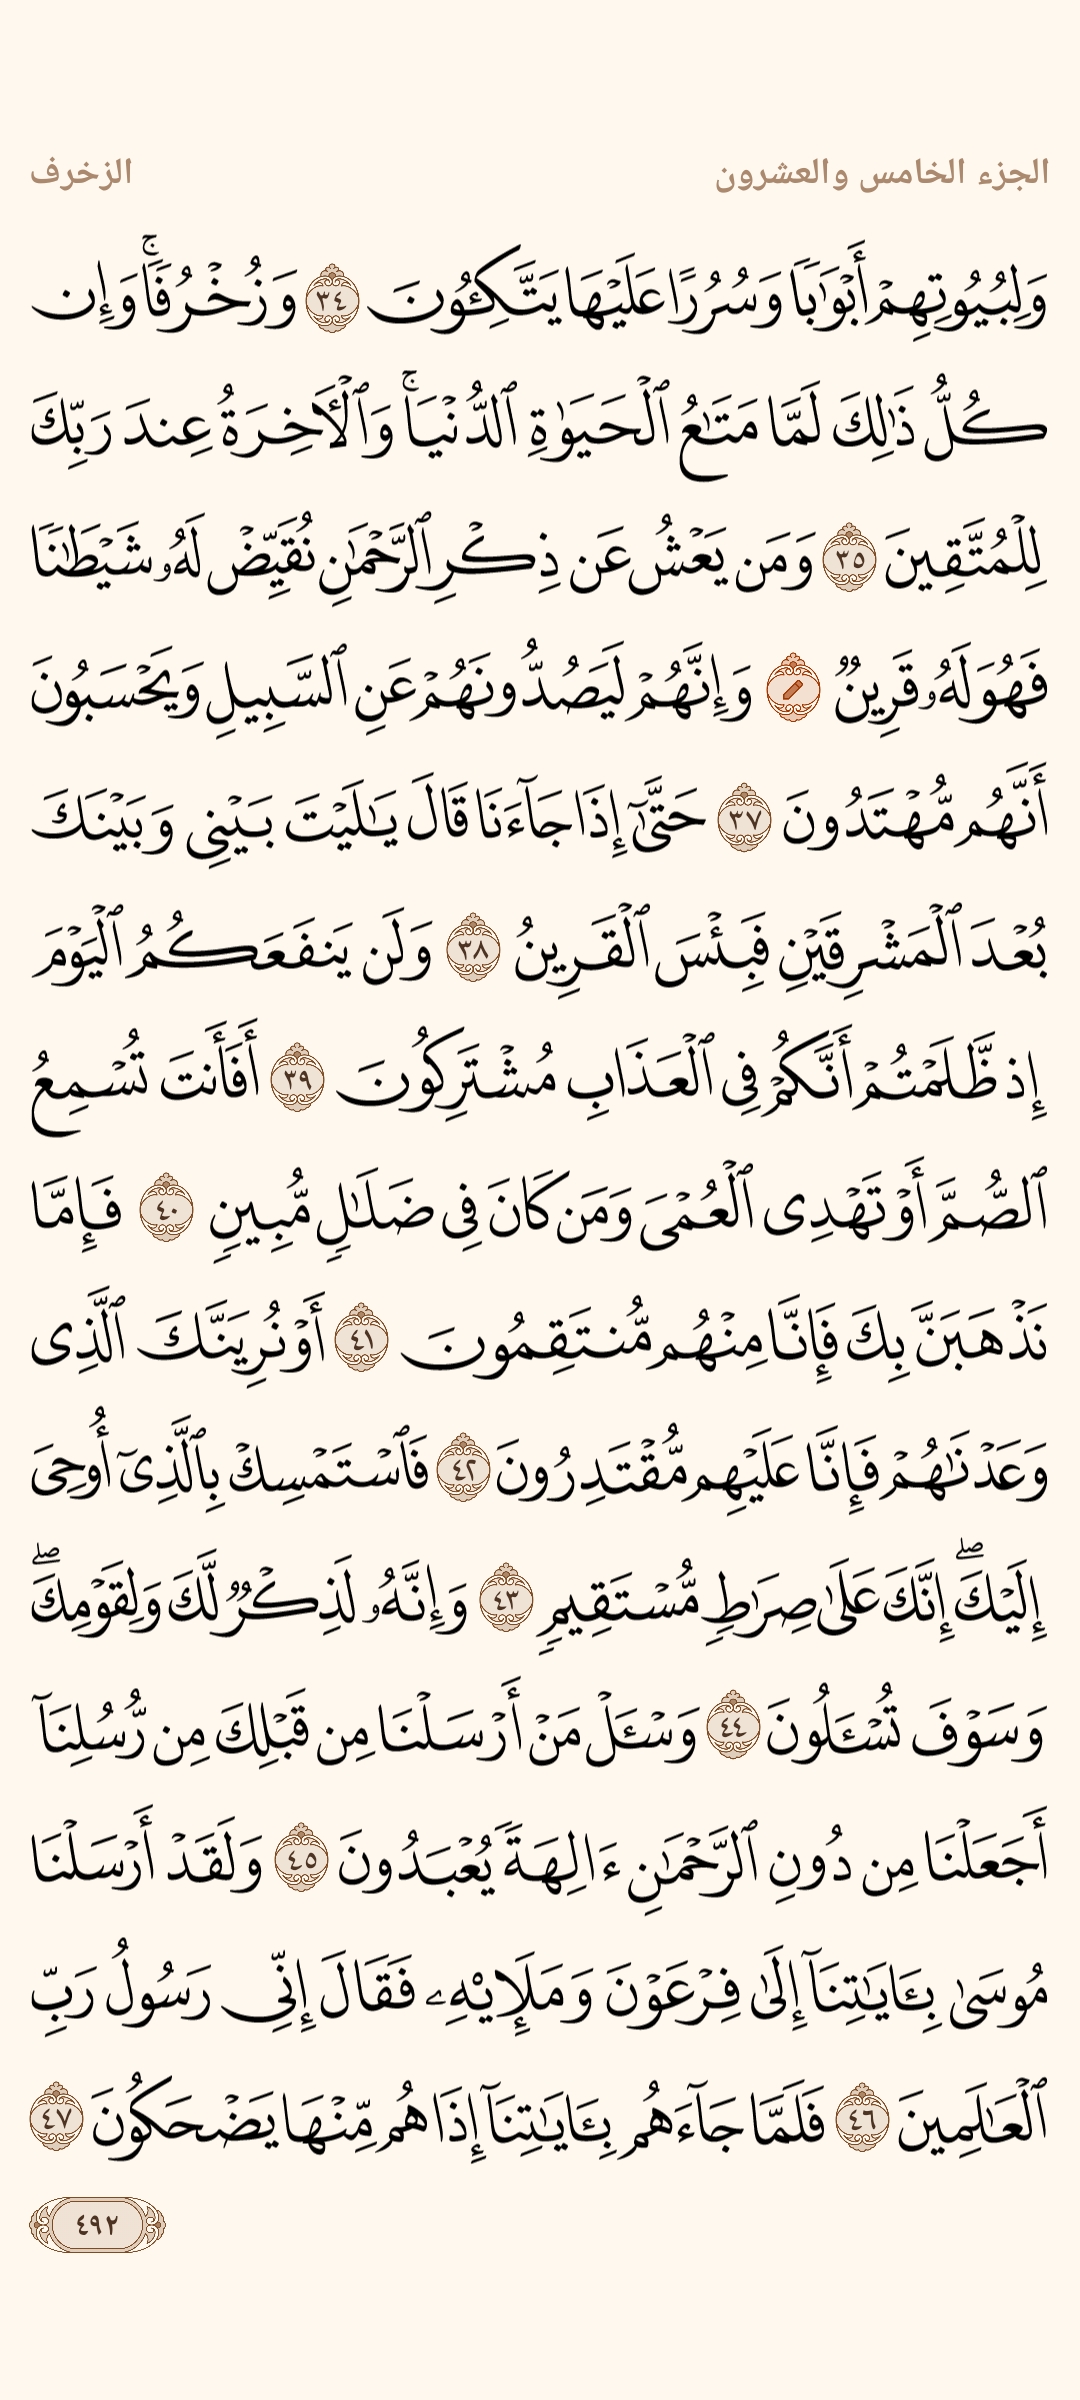 الجزء الخامس والعشرون
الزخرف
وَلِبُيُوتِهِمْ أَبْوَٰبًا وَسُرُرًا عَلَيْهَا يَتَّكِـُٔونَ ٣٤ وَزُخْرُفًا ۚ وَإِن
كُلُّ ذَٰلِكَ لَمَّا مَتَـٰعُ ٱلْحَيَوٰةِ ٱلدُّنْيَا ۚ وَٱلْـَٔاخِرَةُ عِندَ رَبِّكَ
لِلْمُتَّقِينَ ٣٥ وَمَن يَعْشُ عَن ذِكْرِ ٱلرَّحْمَـٰنِ نُقَيِّضْ لَهُۥ شَيْطَـٰنًا
فَهُوَ لَهُۥ قَرِينٌ وَإِنَّهُمْ لَيَصُدُّونَهُمْ عَنِ ٱلسَّبِيلِ وَيَحْسَبُونَ
أَنَّهُم مُّهْتَدُونَ ٣٧ حَتَّىٰٓ إِذَا جَآءَنَا قَالَ يَـٰلَيْتَ بَيْنِى وَبَيْنَكَ
بُعْدَ ٱلْمَشْرِقَيْنِ فَبِئْسَ ٱلْقَرِينُ ٣٨ وَلَن يَنفَعَكُمُ ٱلْيَوْمَ
إِذ ظَّلَمْتُمْ أَنَّكُمْ فِى ٱلْعَذَابِ مُشْتَرِكُونَ ٣٩ أَفَأَنتَ تُسْمِعُ
ٱلصُّمَّ أَوْ تَهْدِى ٱلْعُمْىَ وَمَن كَانَ فِى ضَلَـٰلٍ مُّبِينٍ ٤٠ فَإِمَّا
نَذْهَبَنَّ بِكَ فَإِنَّا مِنْهُم مُّنتَقِمُونَ ٤١ أَوْ نُرِيَنَّكَ ٱلَّذِى
وَعَدْنَـٰهُمْ فَإِنَّا عَلَيْهِم مُّقْتَدِرُونَ ٤٢ فَٱسْتَمْسِكْ بِٱلَّذِىٓ أُوحِىَ
إِلَيْكَ ۖ إِنَّكَ عَلَىٰ صِرَٰطٍ مُّسْتَقِيمٍ ٤٣ وَإِنَّهُۥ لَذِكْرٌ لَّكَ وَلِقَوْمِكَ ۖ
وَسَوْفَ تُسْـَٔلُونَ ٤٤ وَسْـَٔلْ مَنْ أَرْسَلْنَا مِن قَبْلِكَ مِن رُّسُلِنَآ
أَجَعَلْنَا مِن دُونِ ٱلرَّحْمَـٰنِ ءَالِهَةً يُعْبَدُونَ ٤٥ وَلَقَدْ أَرْسَلْنَا
مُوسَىٰ بِـَٔايَـٰتِنَآ إِلَىٰ فِرْعَوْنَ وَمَلَإِي۟هِۦ فَقَالَ إِنِّى رَسُولُ رَبِّ
ٱلْعَـٰلَمِينَ ٤٦ فَلَمَّا جَآءَهُم بِـَٔايَـٰتِنَآ إِذَا هُم مِّنْهَا يَضْحَكُونَ ٤٧
٤٩٢